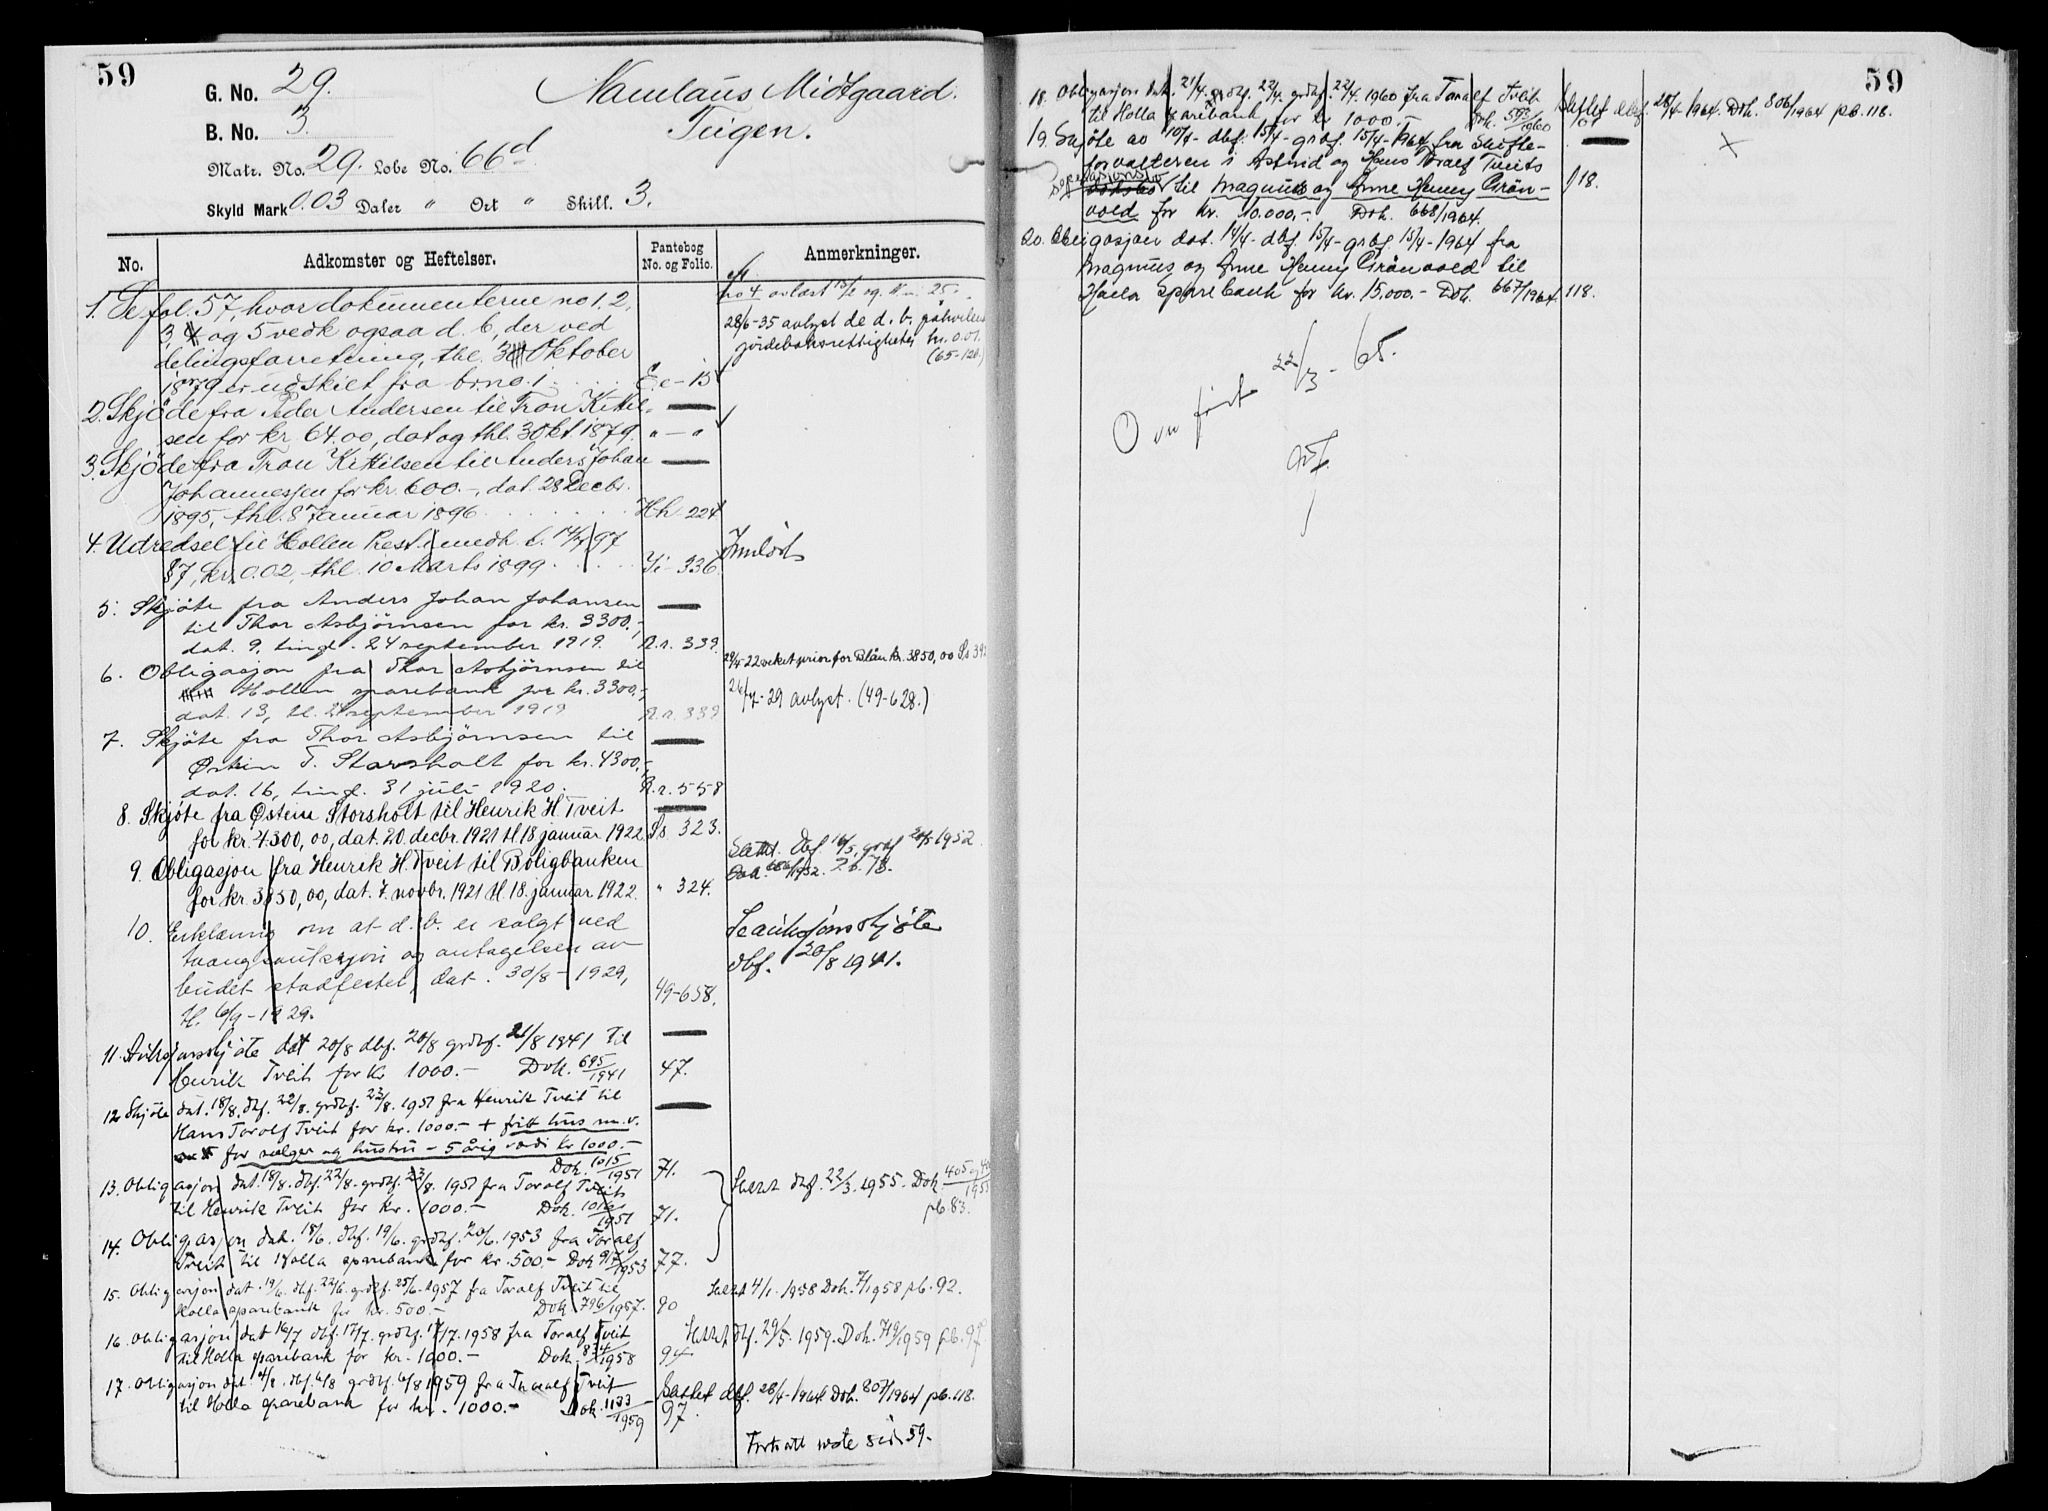 59
G. No. 29.
Namlaus Midtgaard.
B. No. 3.
Tigen.
Matr. No. 29. Løbe No. 66d
Skyld Mark 0.03 Daler " Ort " Skill. 3.
No.
Adkomster og Heftelser.
Pantebog No. og Folio.
Anmerkninger.
1. Se fol. 57, hvor dokumenterne no 1, 2,
3, 4 og 5 vedk ogsaa d. b, der ved
delingsforretning, thl. 3 Oktober
1879 er udskilt fra br.no. 1 E.e - 15
no 4 avlæst
28/6-35 avlyst de d. b. påhvilende
jordebokrettigheter kr. 0.01.
(65-120.)
2. Skjöde fra Peder Andersen til Tron Kittil-
sen for kr. 64.00, dat og thl. 3 Okt. 1879. " — "
3. Skjöde fra Tron Kittilsen til Anders Johan
Johannessen for kr. 600.-, dat. 28 Decbr.
1895, thl. 8 Januar 1896 H.h 224
4. Udredsel til Hollen Prest. i medh. l. 14/7 97
§7, kr. 0.02, thl. 10 Marts 1899. Ii - 336.
Innløst
5. Skjöte fra Anders Johan Johansen
til Thor Asbjörnsen for kr. 3300,-
dat. 9, tingl. 24 september 1919. R.r. 339.
6. Obligasjon fra Thor Asbjörnsen til
Hollen sparebank for kr. 3300,-,
dat. 13, tl. 24 september 1919 R.r. 339
29/4-22 veket prior for Blån kr. 3850,00 Ss 392
26/7-29 avlyst. (49-628.)
7. Skjöte fra Thor Asbjörnsen til
Östein T. Storsholt for kr. 4300,-,
dat. 16, tingl. 31 juli 1920. R.r. 558
8. Skjøte fra Østein Storsholt til Henrik H. Tveit
for kr. 4300,00, dat. 20. decbr. 1921 tl. 18 januar 1922. Ss. 323.
9. Obligasjon fra Henrik H. Tveit til Boligbanken
for kr. 3850,00, dat. 7. novbr. 1921 tl. 18. januar 1922. " 324.
Slettet. Dbf. 16/5, grdbf 20/5 1952.
Dok. 686/1952. P.b. 73.
10. Erklæring om at d. b. er solgt ved
tvangsauksjon og antagelsen av
budet stadfestet, dat. 30/8 - 1929,
tl. 6/9 - 1929. 49-658.
Se auksjonsskjöte
dbf. 20/8 1941.
11. Auksjonsskjöte dat 20/8 dbf. 20/8 grdbf. 21/8 1941 til
Henrik Tveit for kr 1000.- Dok. 695/1941 47.
12. Skjöte dat. 18/8. dbf. 22/8. grdbf. 23/8. 1951 fra Henrik Tveit til
Hans Toralf Tveit for kr. 1000.- + fritt hus m.v.
for selger og hustru - 5 årig verdi kr 1000.-
Dok. 1015/1951 71.
13. Obligasjon dat. 18/8. dbf. 22/8. grdbf. 23/8. 1951 fra Toralf Tveit
til Henrik Tveit for kr. 1000.- Dok. 1016/1951 71.
Slettet dbf. 22/3. 1955. Dok 405 og /1955
pb. 83.
14. Obligasjon dat. 18/6. dbf. 19/6. grdbf. 20/6. 1953 fra Toralf
Tveit til Holla sparebank for kr. 500.- Dok 917/1953 77.
15. Obligasjon dat. 19/6. dbf. 22/6. grdbf. 25/6. 1957 fra Toralf Tveit til
Holla sparebank for kr. 500.- Dok 796/1957. 90
Slettet 4/1. 1958 Dok. 7/1958 pb. 92.
16. Obligasjon dat 16/7 dbf. 17/7. grdbf. 17/7. 1958 fra Toralf Tveit
til Holla sparebank for kr. 1000.- Dok. 834/1958 94
Slettet dbf. 29/5. 1959. Dok. 719/1959 pb. 97
17. Obligasjon dat 4/8. dbf. 6/8 grdbf. 6/8 1959 fra Toralf Tveit
til Holla sparebank for kr. 1000.- Dok. 1133/1959 97.
Slettet dbf. 28/4-1964 Dok. 807/1964 pb. 118.
Fortsatt neste side 59.
59
18. Obligasjon dat. 21/4. dbf. 22/4. grdbf. 22/4. 1960 fra Toralf Tveit
til Holla sparebank for kr 1000.- Dok. 593/1960 101
Slettet dbf. 28/4-1964. Dok. 806/1964 pb. 118.
19. Skjöte av 10/4- dbf. 15/4- grbf. 15/4-1964 fra Skifte-
forvalteren i Astrid og Hans Toralf Tveits
separasjonsbo til Magnus og Anne Henny Grön-
vold for kr. 10.000,-. Dok. 668/1964. 118.
20. Obligasjon dat. 14/4- dbf. 15/4- grbf. 15/4-1964 fra
Magnus og Anne Henny Grönvold til
Holla Sparebank for kr. 15.000.- Dok. 667/1964. 118.
Overført 22/3-65.